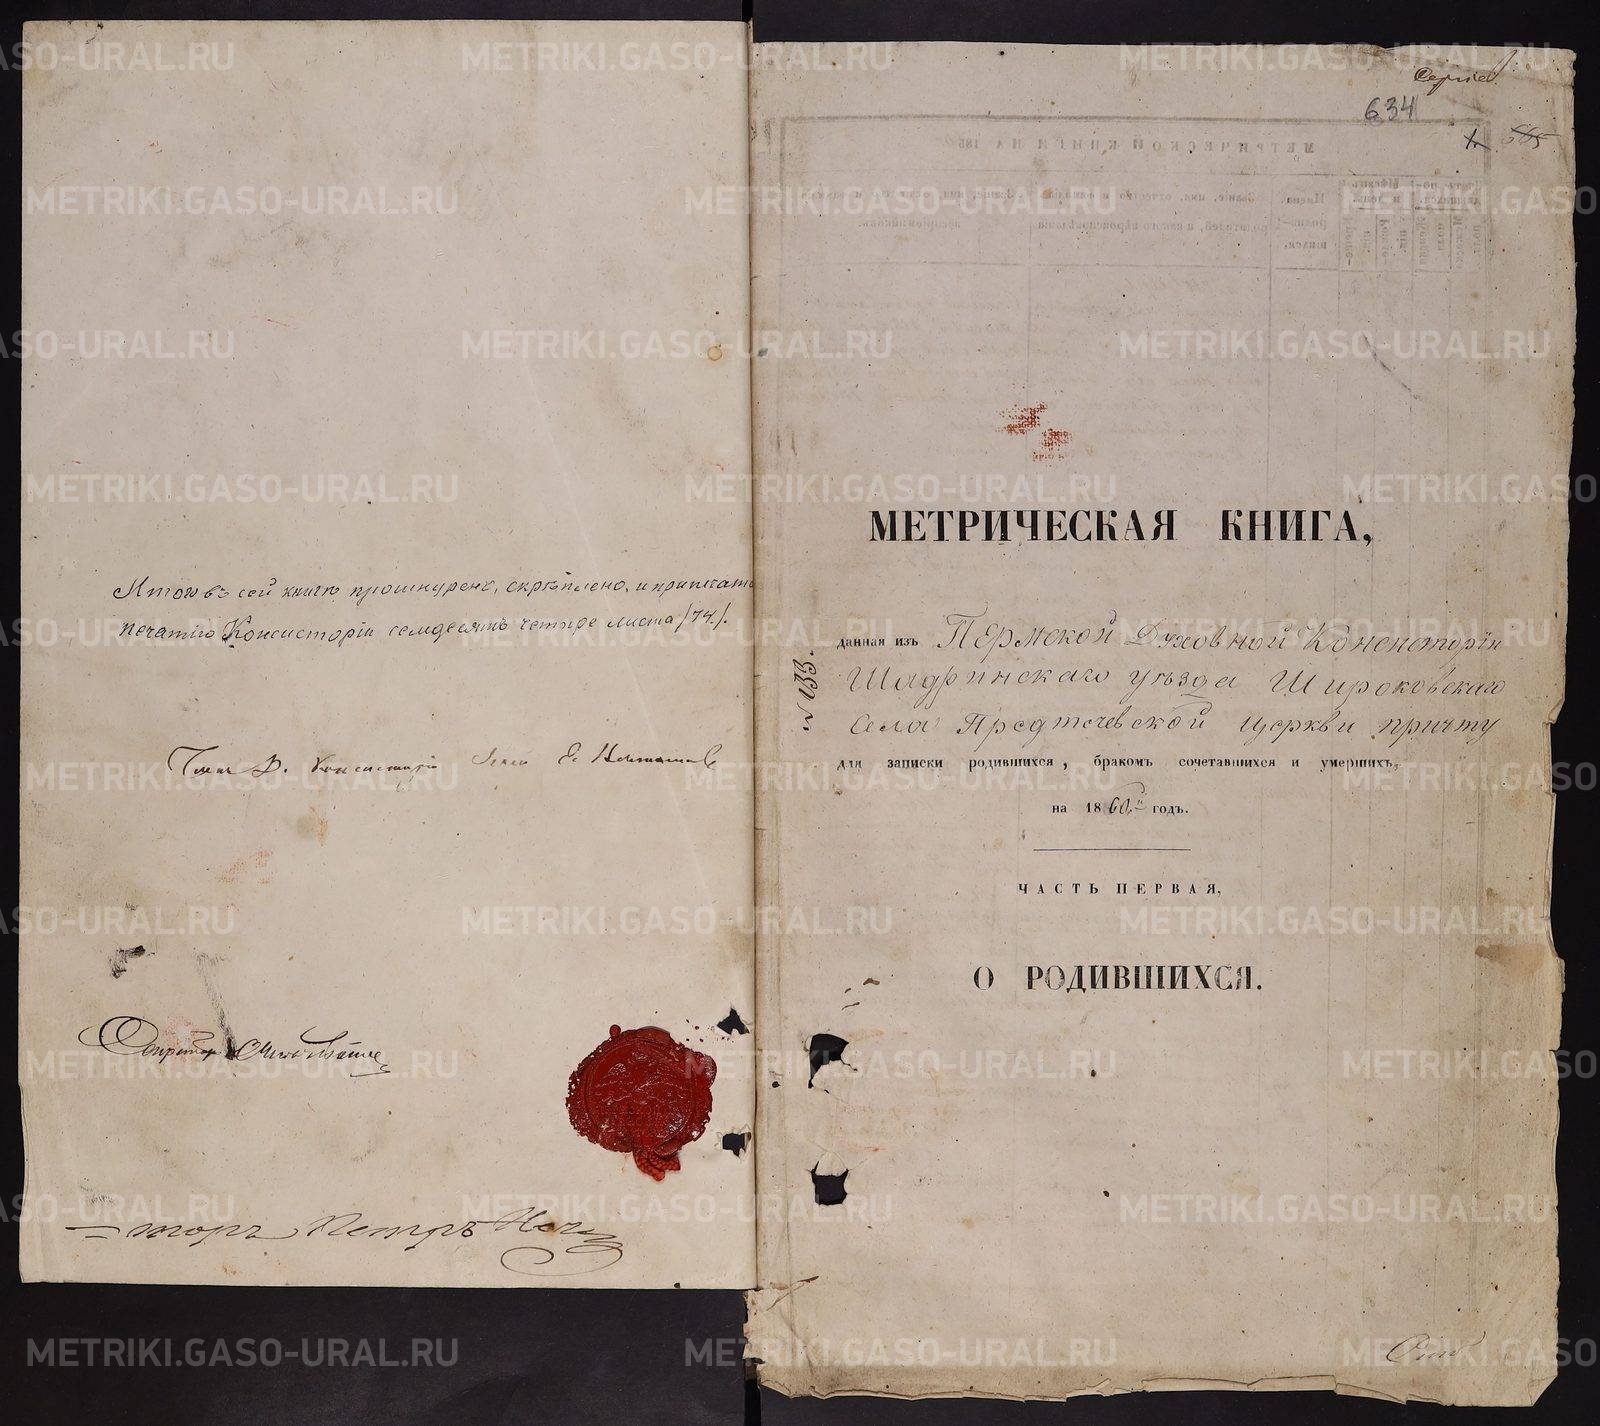 Итого въ сей книгѣ прошнурено, скрѣплено, и припечатано
печатію Консисторіи семдесятъ четыре листа /74/.
Членъ Д. Консисторіи
Секретарь
торъ Петръ
634
1. 565
МЕТРИЧЕСКАЯ КНИГА,
данная изъ Пермской Духовной Консисторіи
Шадринскаго уѣзда Широковскаго
Села Предтечевской церкви причту
для записки родившихся, бракомъ сочетавшихся и умершихъ,
на 1860й годъ.
ЧАСТЬ ПЕРВАЯ,
О РОДИВШИХСЯ.
№ 133.
METRIKI.GASO-URAL.RU